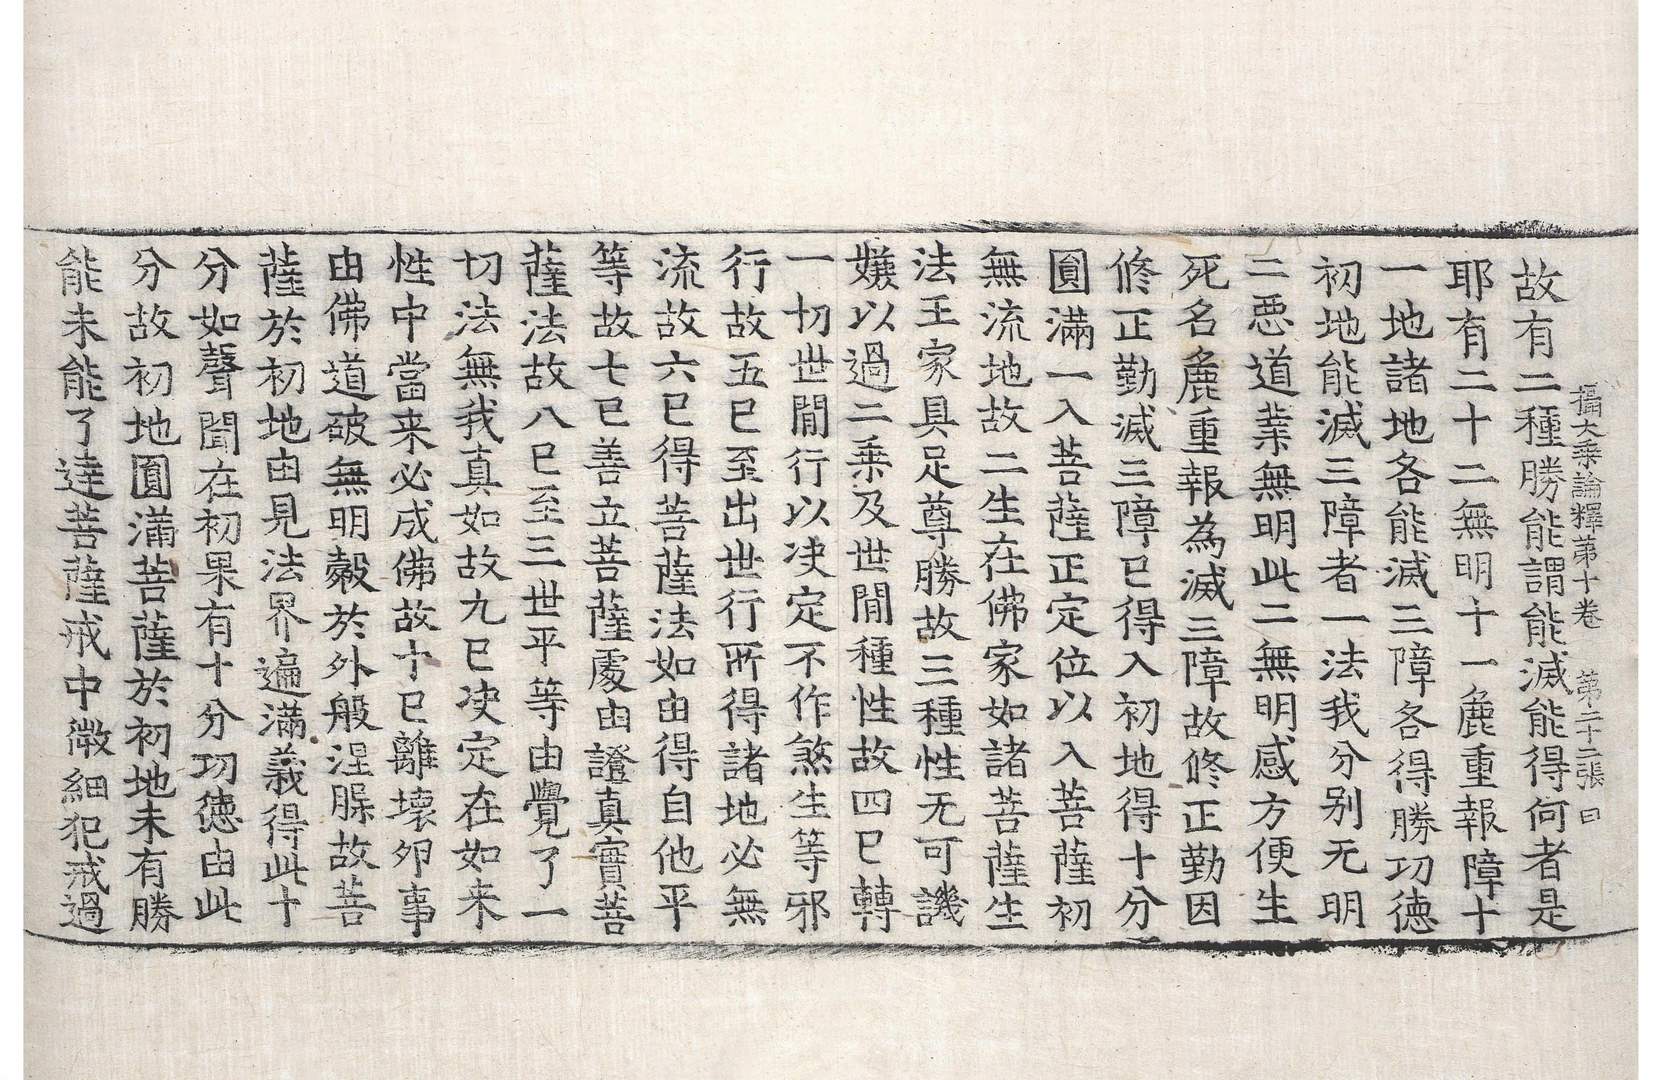 攝大乘論釋第十卷 第二十二張 曰
故有二種勝能謂能滅能得何者是
耶有二十二無明十一麁重報障十
一地諸地各能滅三障各得勝功德
初地能滅三障者一法我分别无明
二惡道業無明此二無明感方便生
死名麁重報為滅三障故修正勤因
修正勤滅三障已得入初地得十分
圓滿一入菩薩正定位以入菩薩初
無流地故二生在佛家如諸菩薩生
法王家具足尊勝故三種性无可譏
嫌以過二乘及世間種性故四已轉
一切世間行以决定不作煞生等邪
行故五已至出世行所得諸地必無
流故六已得菩薩法如由得自他平
等故七已善立菩薩處由證真實菩
薩法故八已至三世平等由覺了一
切法無我真如故九已决定在如来
性中當来必成佛故十已離壞卵事
由佛道破無明㲉於外般涅槃故菩
薩於初地由見法界遍滿義得此十
分如聲聞在初果有十分功德由此
分故初地圓滿菩薩於初地未有勝
能未能了達菩薩戒中微細犯戒過